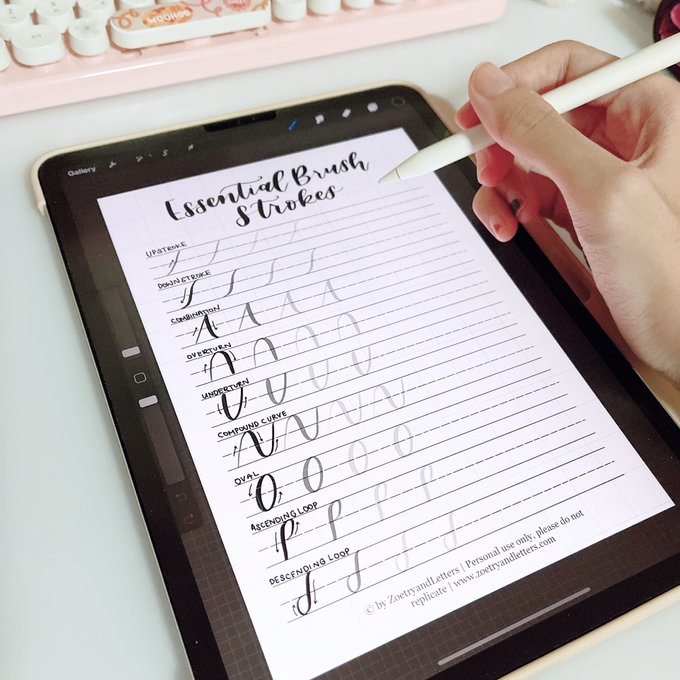 Gallery
Essential Brush
Strokes
UPSTROKE
DOWNSTROKE
COMBINATION
OVERTURN
UNDERTURN
COMPOUND CURVE
OVAL
ASCENDING LOOP
DESCENDING LOOP
© by ZoetryandLetters | Personal use only, please do not
replicate | www.zoetryandletters.com